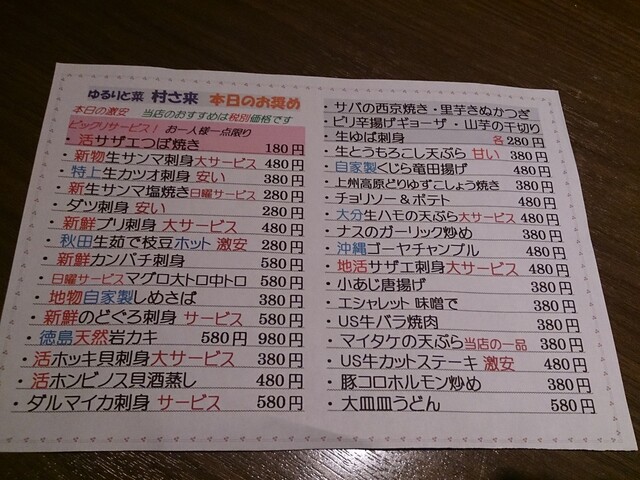 ゆるりと菜 村さ来 本日のお奨め
本日の激安 当店のおすすめは税別価格です
ビックリサービス！ お一人様一点限り
・活サザエつぼ焼き 180円
・新物生サンマ刺身大サービス 480円
・特上生カツオ刺身 安い 380円
・新生サンマ塩焼き日曜サービス 280円
・ダツ刺身 安い 280円
・新鮮ブリ刺身 大サービス 480円
・秋田生茹で枝豆ホット 激安 280円
・新鮮カンパチ刺身 580円
・日曜サービスマグロ大トロ中トロ 580円
・地物自家製しめさば 380円
・新鮮のどぐろ刺身 サービス 580円
・徳島天然岩カキ 580円 980円
・活ホッキ貝刺身大サービス 380円
・活ホンビノス貝酒蒸し 480円
・ダルマイカ刺身 サービス 580円
・サバの西京焼き・里芋きぬかつぎ
・ピリ辛揚げギョーザ・山芋の千切り
・生ゆば刺身 各280円
・生とうもろこし天ぷら 甘い 380円
・自家製くじら竜田揚げ 480円
・上州高原どりゆずこしょう焼き 380円
・チョリソー＆ポテト 480円
・大分生ハモの天ぷら大サービス 480円
・ナスのガーリック炒め 380円
・沖縄ゴーヤチャンプル 480円
・地活サザエ刺身大サービス 480円
・小あじ唐揚げ 380円
・エシャレット 味噌で 380円
・US牛バラ焼肉 380円
・マイタケの天ぷら当店の一品 380円
・US牛カットステーキ 激安 480円
・豚コロホルモン炒め 380円
・大皿皿うどん 580円